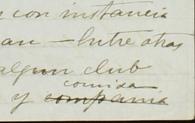 con instancia
an — Entre otras
algun club
comida
y compania